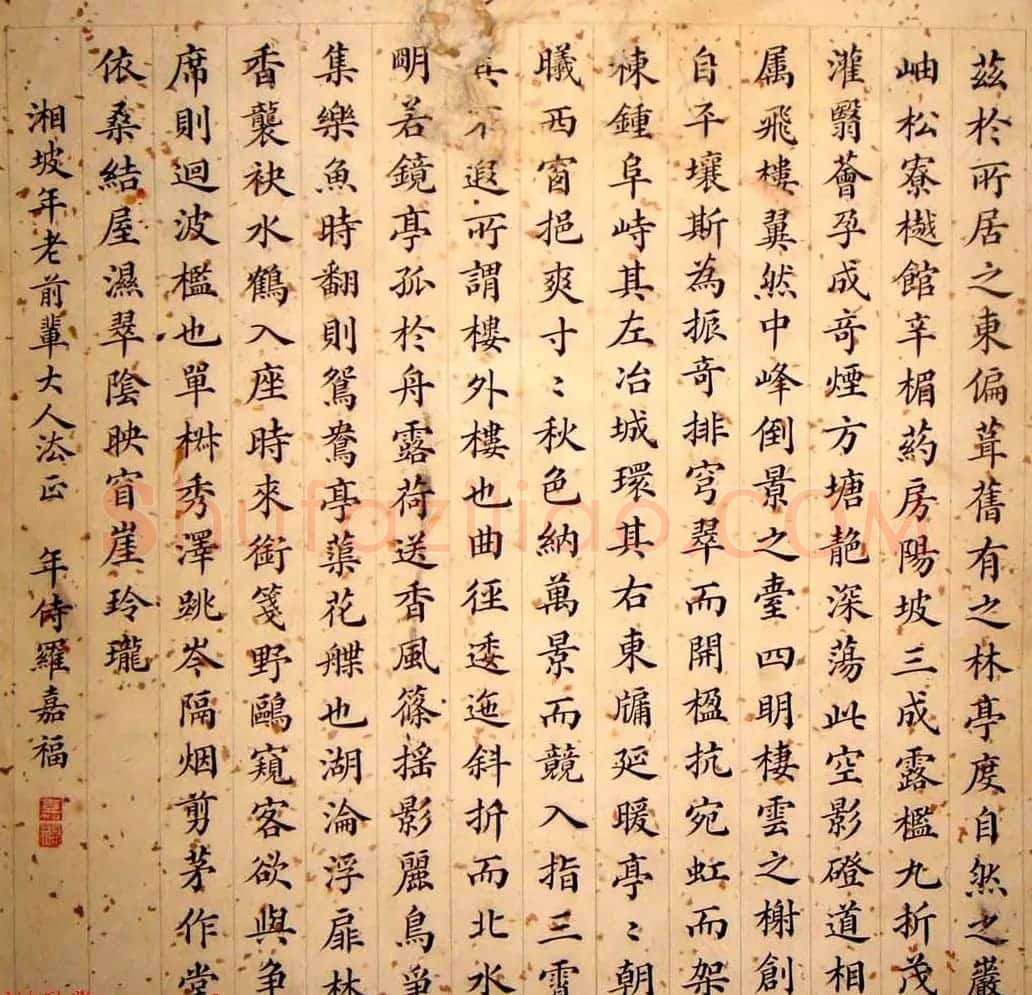 茲於所居之東偏葺舊有之林亭度自然之巖
岫松寮樾館辛楣葯房陽坡三成露檻九折茂
灌翳薈孕成奇煙方塘靘深蕩此空影磴道相
属飛樓翼然中峰倒景之臺四明棲雲之榭創
自平壤斯為振奇排穹翠而開楹抗宛虹而架
棟鍾阜峙其左冶城環其右東牖延暖亭〻朝
曦西窗挹爽寸〻秋色納萬景而競入指三霄
其不遐所謂樓外樓也曲徑逶迤斜折而北水
朙若鏡亭孤於舟露荷送香風篠搖影麗鳥爭
集樂魚時翻則鴛鴦亭蕖花艓也湖淪浮扉林
香襲袂水鶴入座時來銜箋野鷗窺客欲與爭
席則迴波檻也單椒秀澤跳岑隔烟剪茅作堂
依桑結屋濕翠陰映窅崖玲瓏
湘坡年老前輩大人法正 年侍羅嘉福
嘉福
Shufaziliao.COM